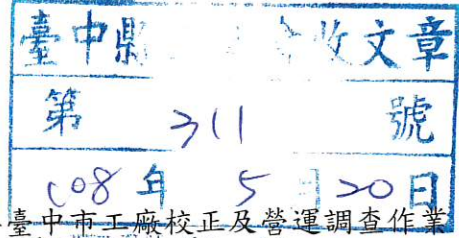 臺中縣 收文章
第 311 號
108年 5月20日
臺中市工廠校正及營運調查作業